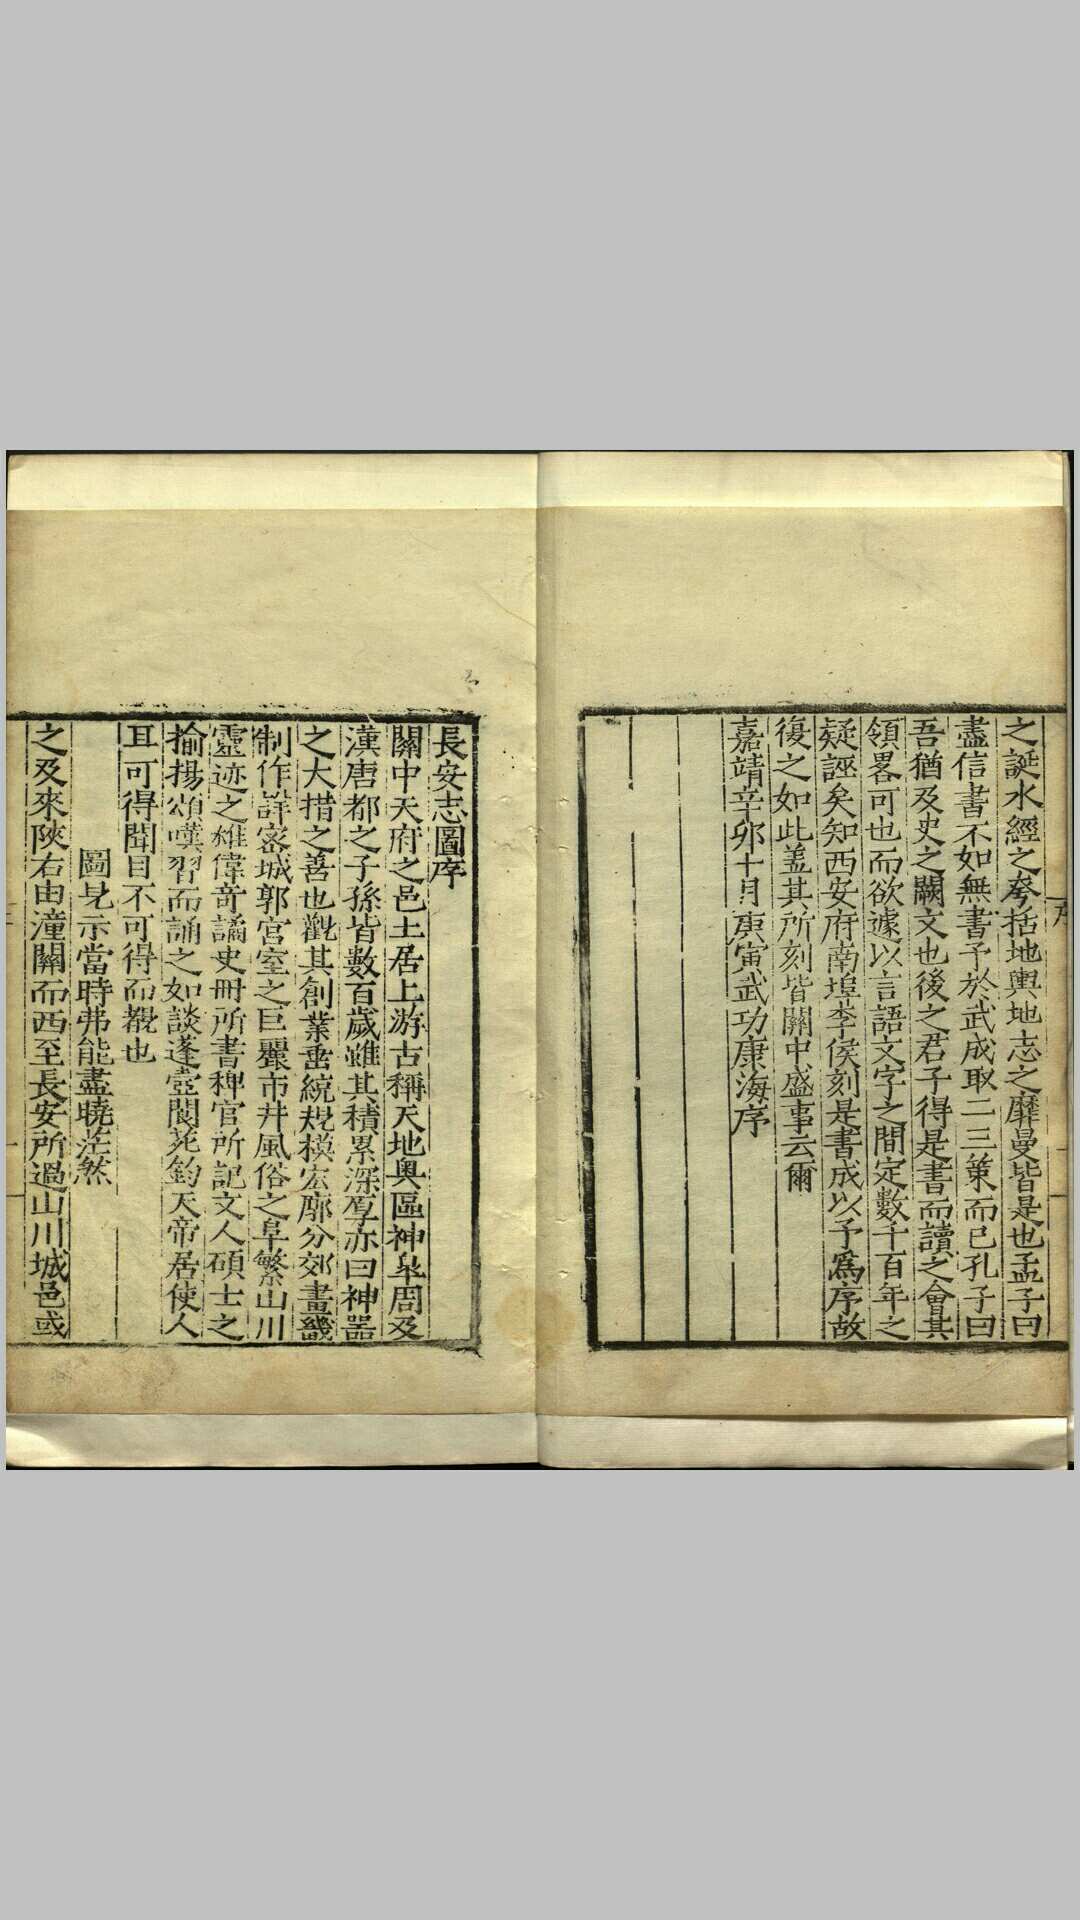 之誕水經之夸括地輿地志之靡曼皆是也孟子曰
盡信書不如無書予於武成取二三策而已孔子曰
吾猶及史之闕文也後之君子得是書而讀之會其
領畧可也而欲遽以言語文字之間定數千百年之
疑誣矣知西安府南埠李侯刻是書成以予爲序故
復之如此蓋其所刻皆關中盛事云爾
嘉靖辛卯十月庚寅武功康海序
長安志圖序
關中天府之邑土居上游古稱天地奥區神臯周及
漢唐都之子孫皆數百歲雖其積累深厚亦曰神器
之大措之善也觀其創業垂統規模宏廓分郊畫畿
制作詳密城郭宫室之巨麗市井風俗之阜繁山川
靈迹之雄偉竒譎史冊所書稗官所記文人碩士之
揄揚頌嘆習而誦之如談蓬壺閬苑鈞天帝居使人
耳可得聞目不可得而覩也
圖見示當時弗能盡曉茫然
之及來陝右由潼關而西至長安所過山川城邑或